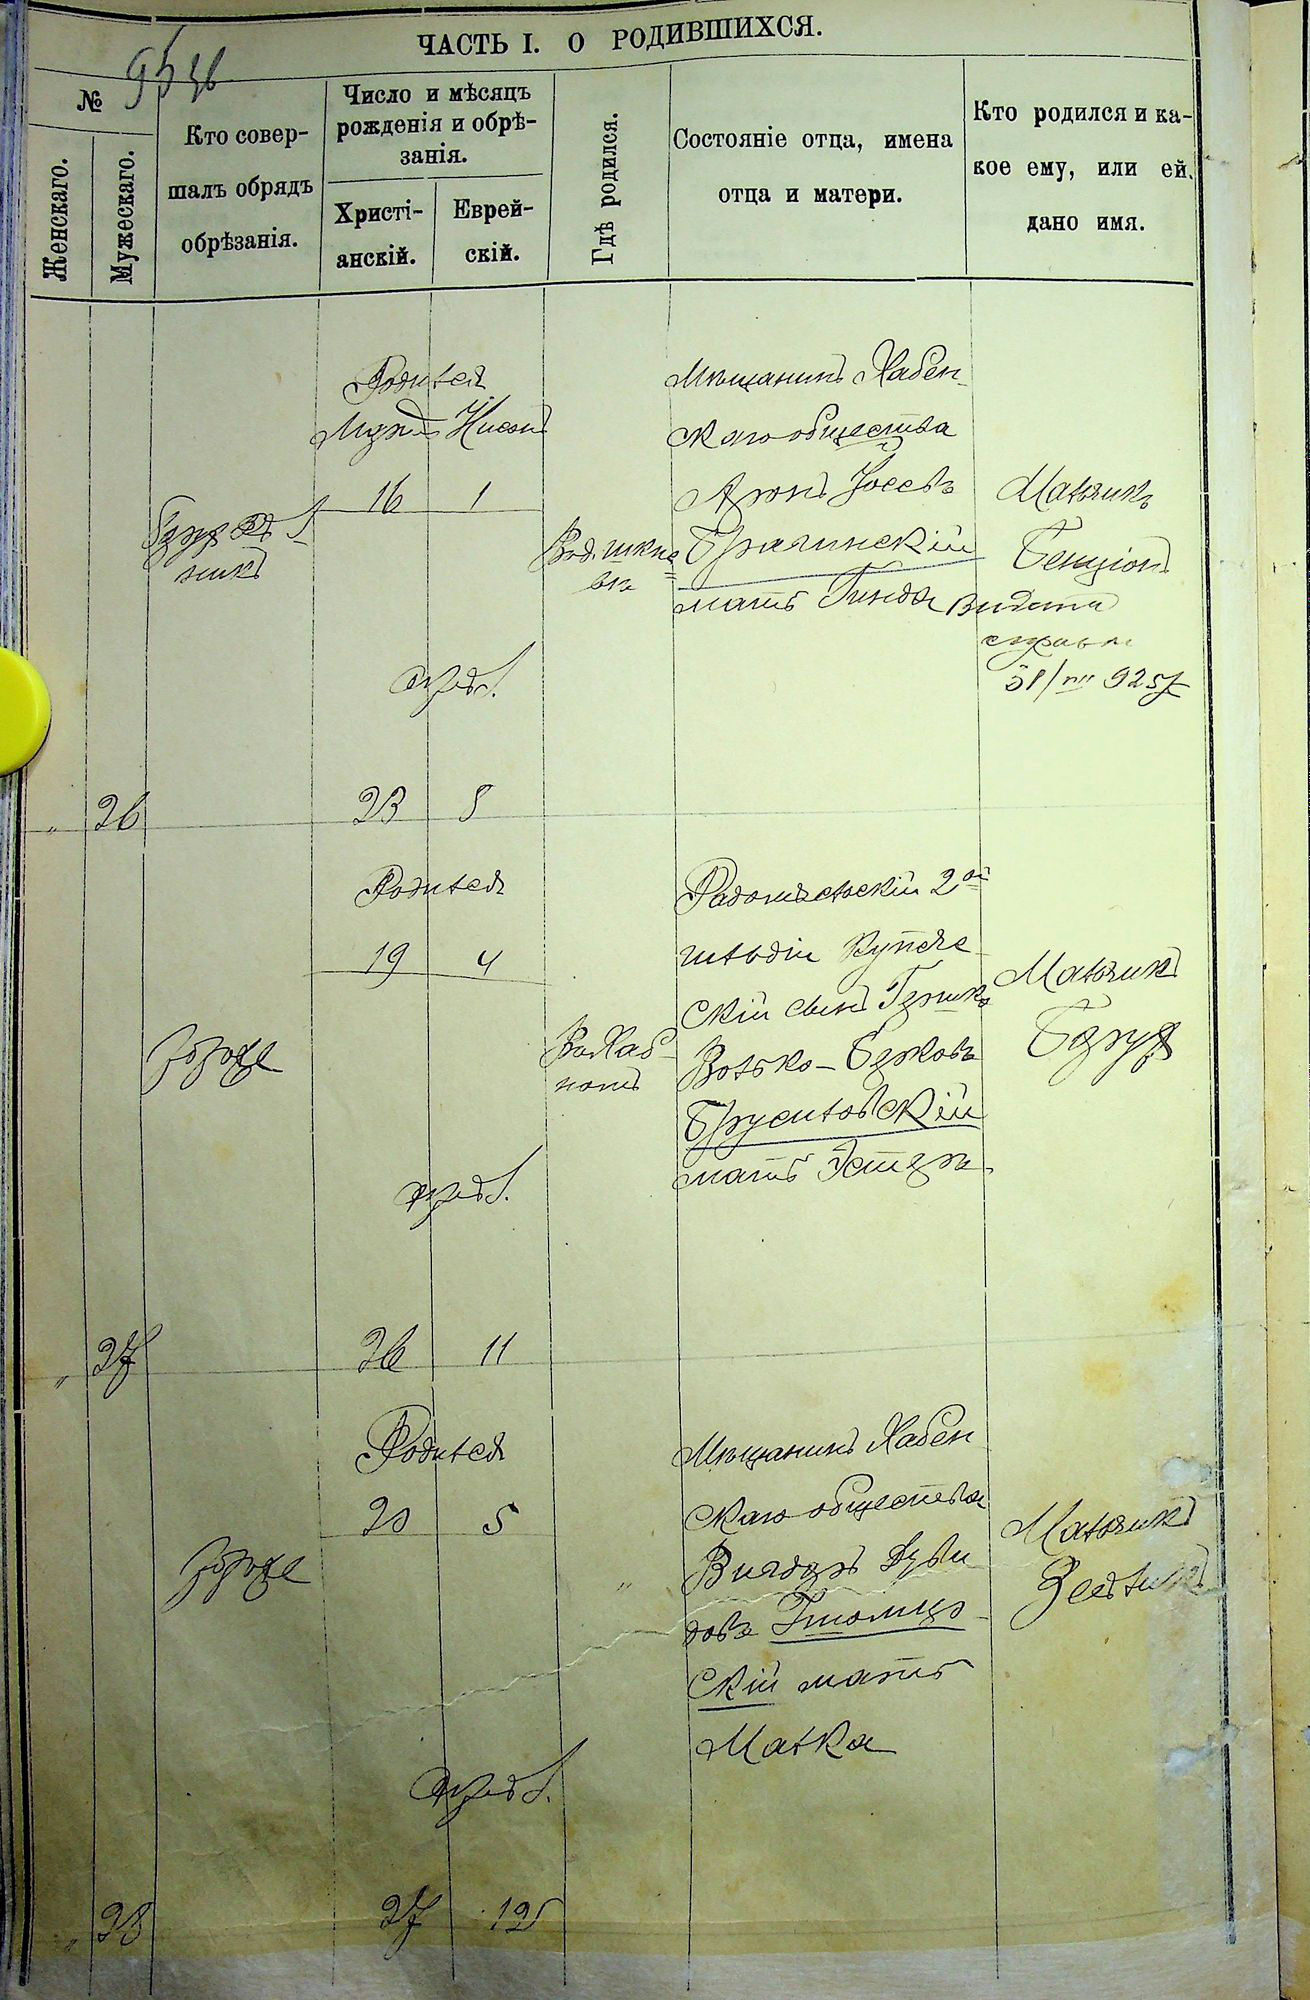 ЧАСТЬ I. О РОДИВШИХСЯ.
№
Женскаго.
Мужескаго.
Кто совер-
шалъ обрядъ
обрѣзанія.
Число и мѣсяцъ
рожденія и обрѣ-
занія.
Христі-
анскій.
Еврей-
скій.
Гдѣ родился.
Состояніе отца, имена
отца и матери.
Кто родился и ка-
кое ему, или ей,
дано имя.
Родился
Мартъ Нисонъ
16 1
Мѣщанинъ Хабен-
скаго общества
Аронъ Іосевъ
матъ Гинда
Мальчикъ
Бенціонъ
Видана
справка
обрѣз.
" 26 23 8
Родился
19 4
Радомысльскій 2ой
гильдіи купече-
скій сынъ Гершко
Волько-Берковъ
Брусиловскій
мать Эстеръ
Мальчикъ
Берух
Въ Хаб-
номъ
обрѣз.
" 27 26 11
Родился
20 5
Мѣщанинъ Хабен
скаго общества
скій мать
Малка
"
Мальчикъ
обрѣз.
" 28 27 12